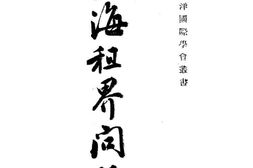 洋國際學會叢書
海租界問